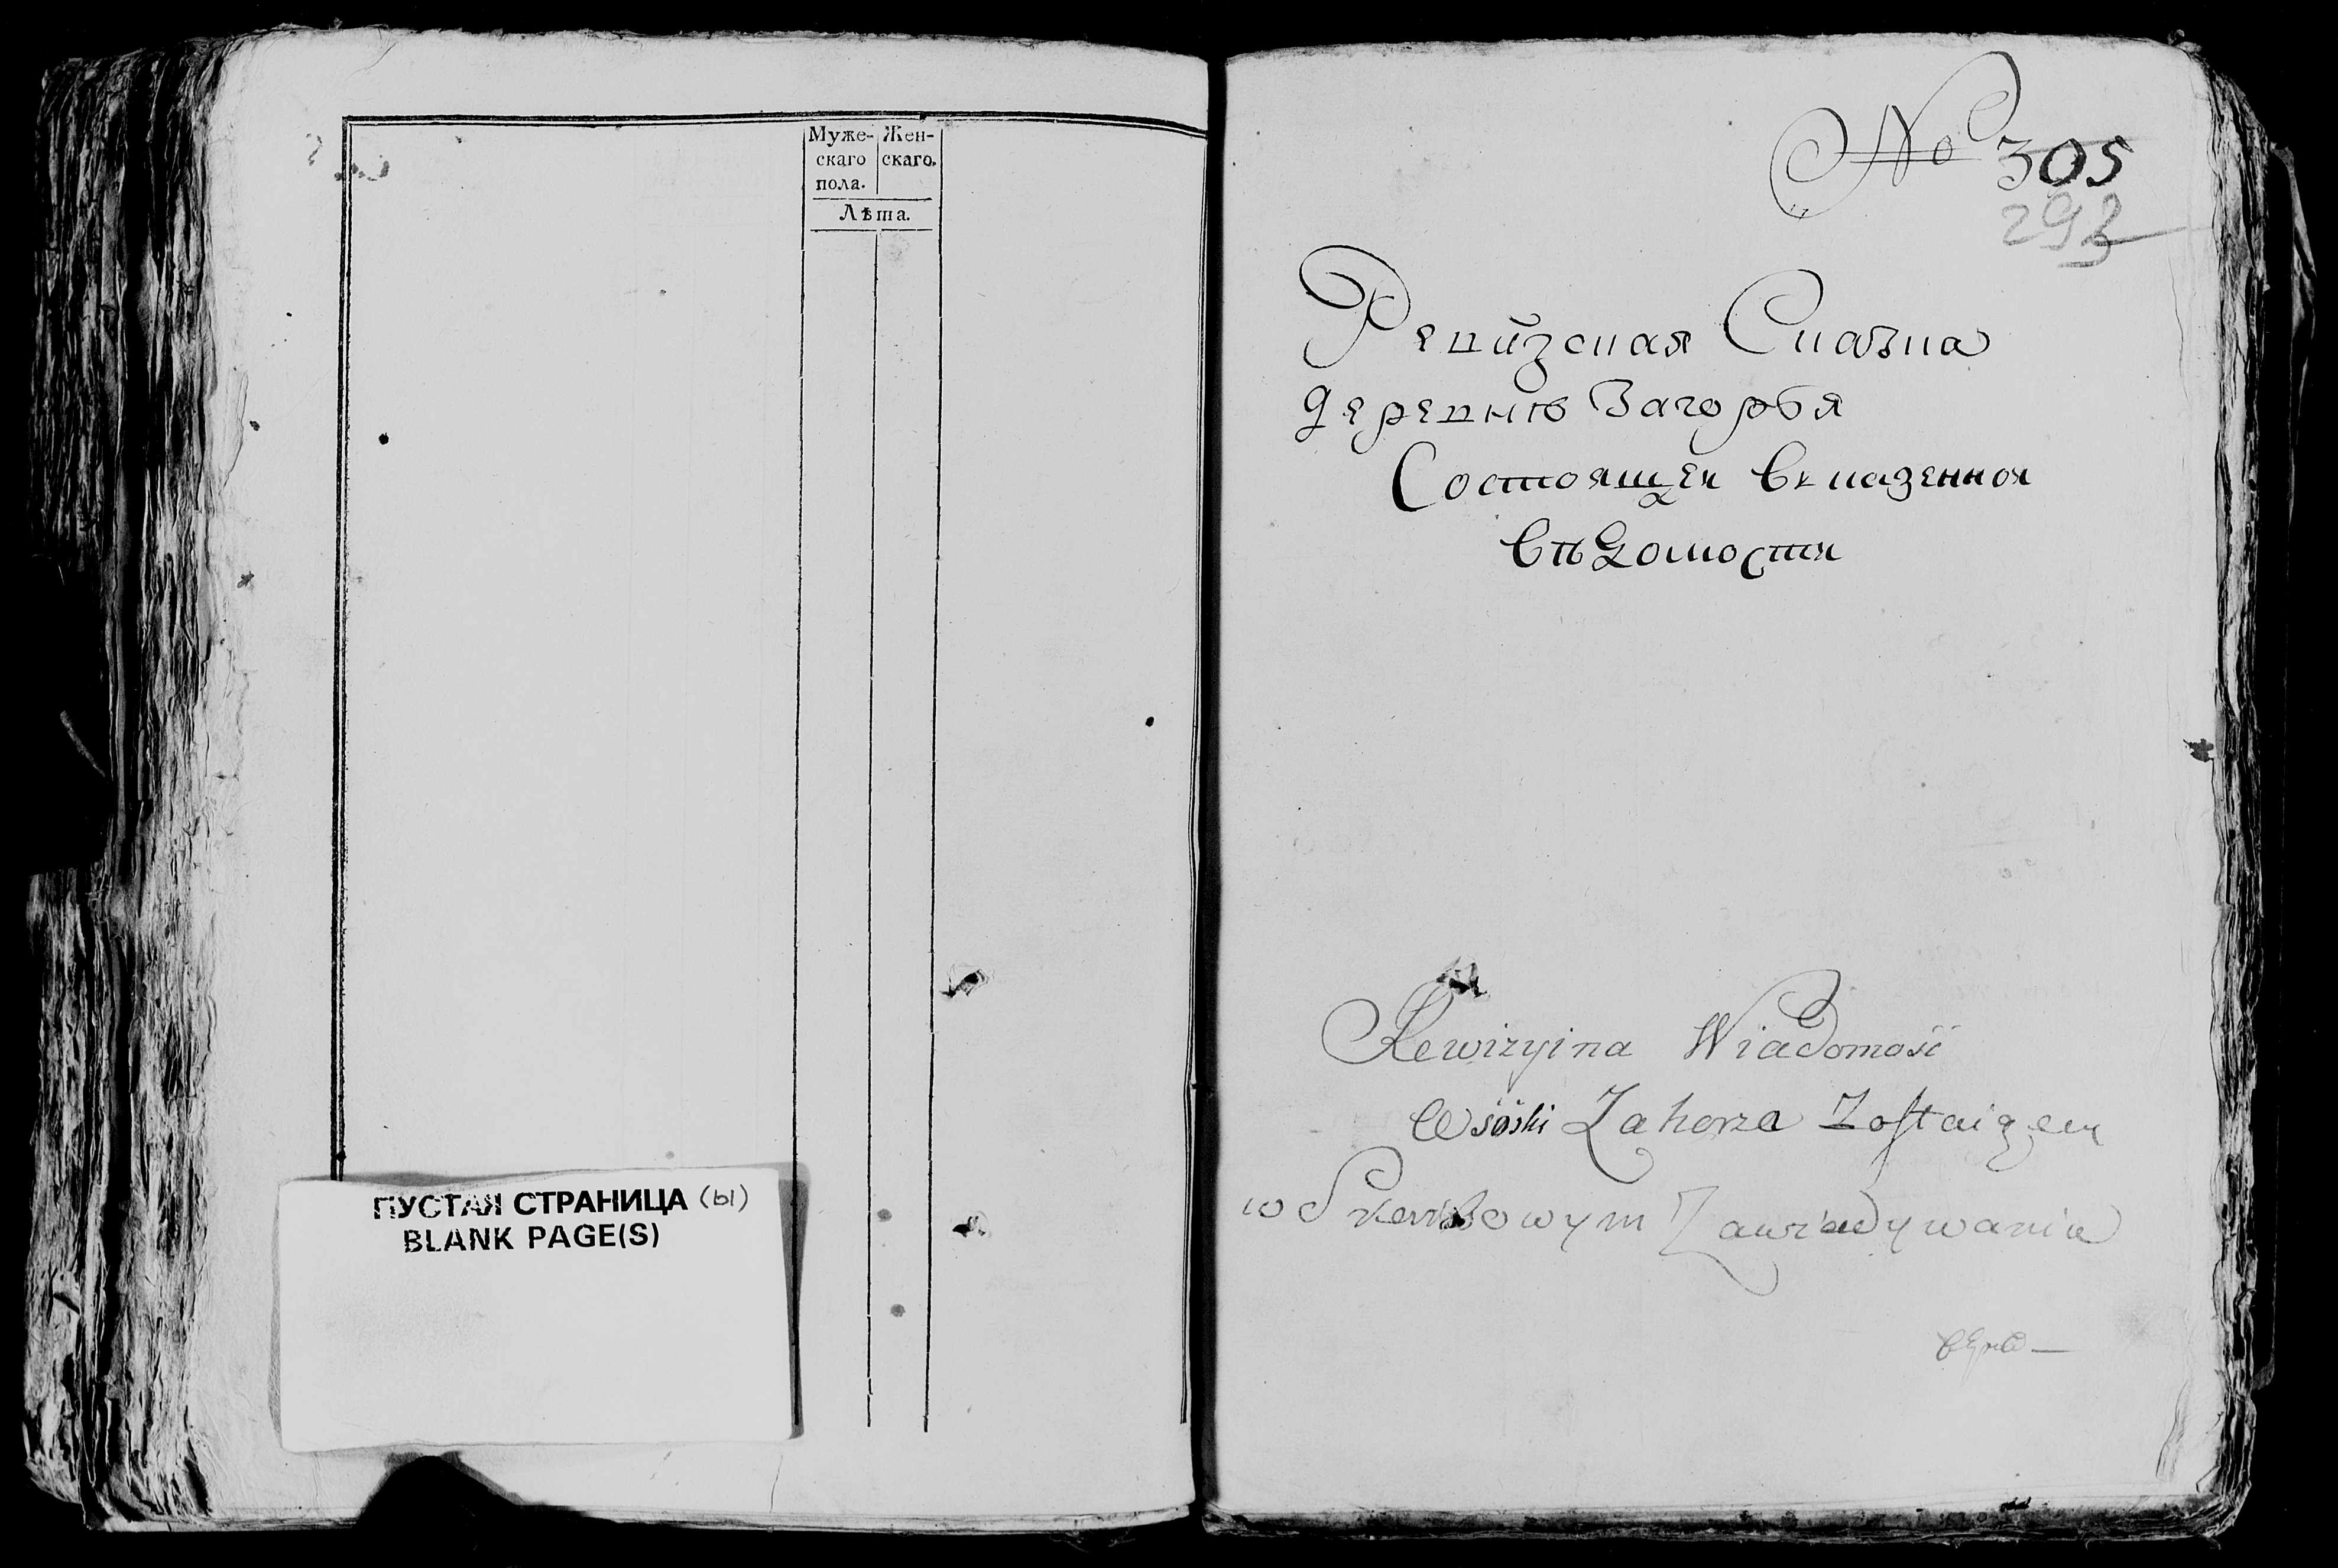 Муже- Жен-
скаго скаго.
пола.
Лѣта.
ПУСТАЯ СТРАНИЦА (ы)
BLANK PAGE(S)
No 305
293
Ревизская Сказка
деревнѣ Загорья
Состоящей въ казенной
вѣдомости
Rewizyina Wiadomość
Wsiöski Zahorza Zostaiącey
w Skarbowym Zawiadywaniu